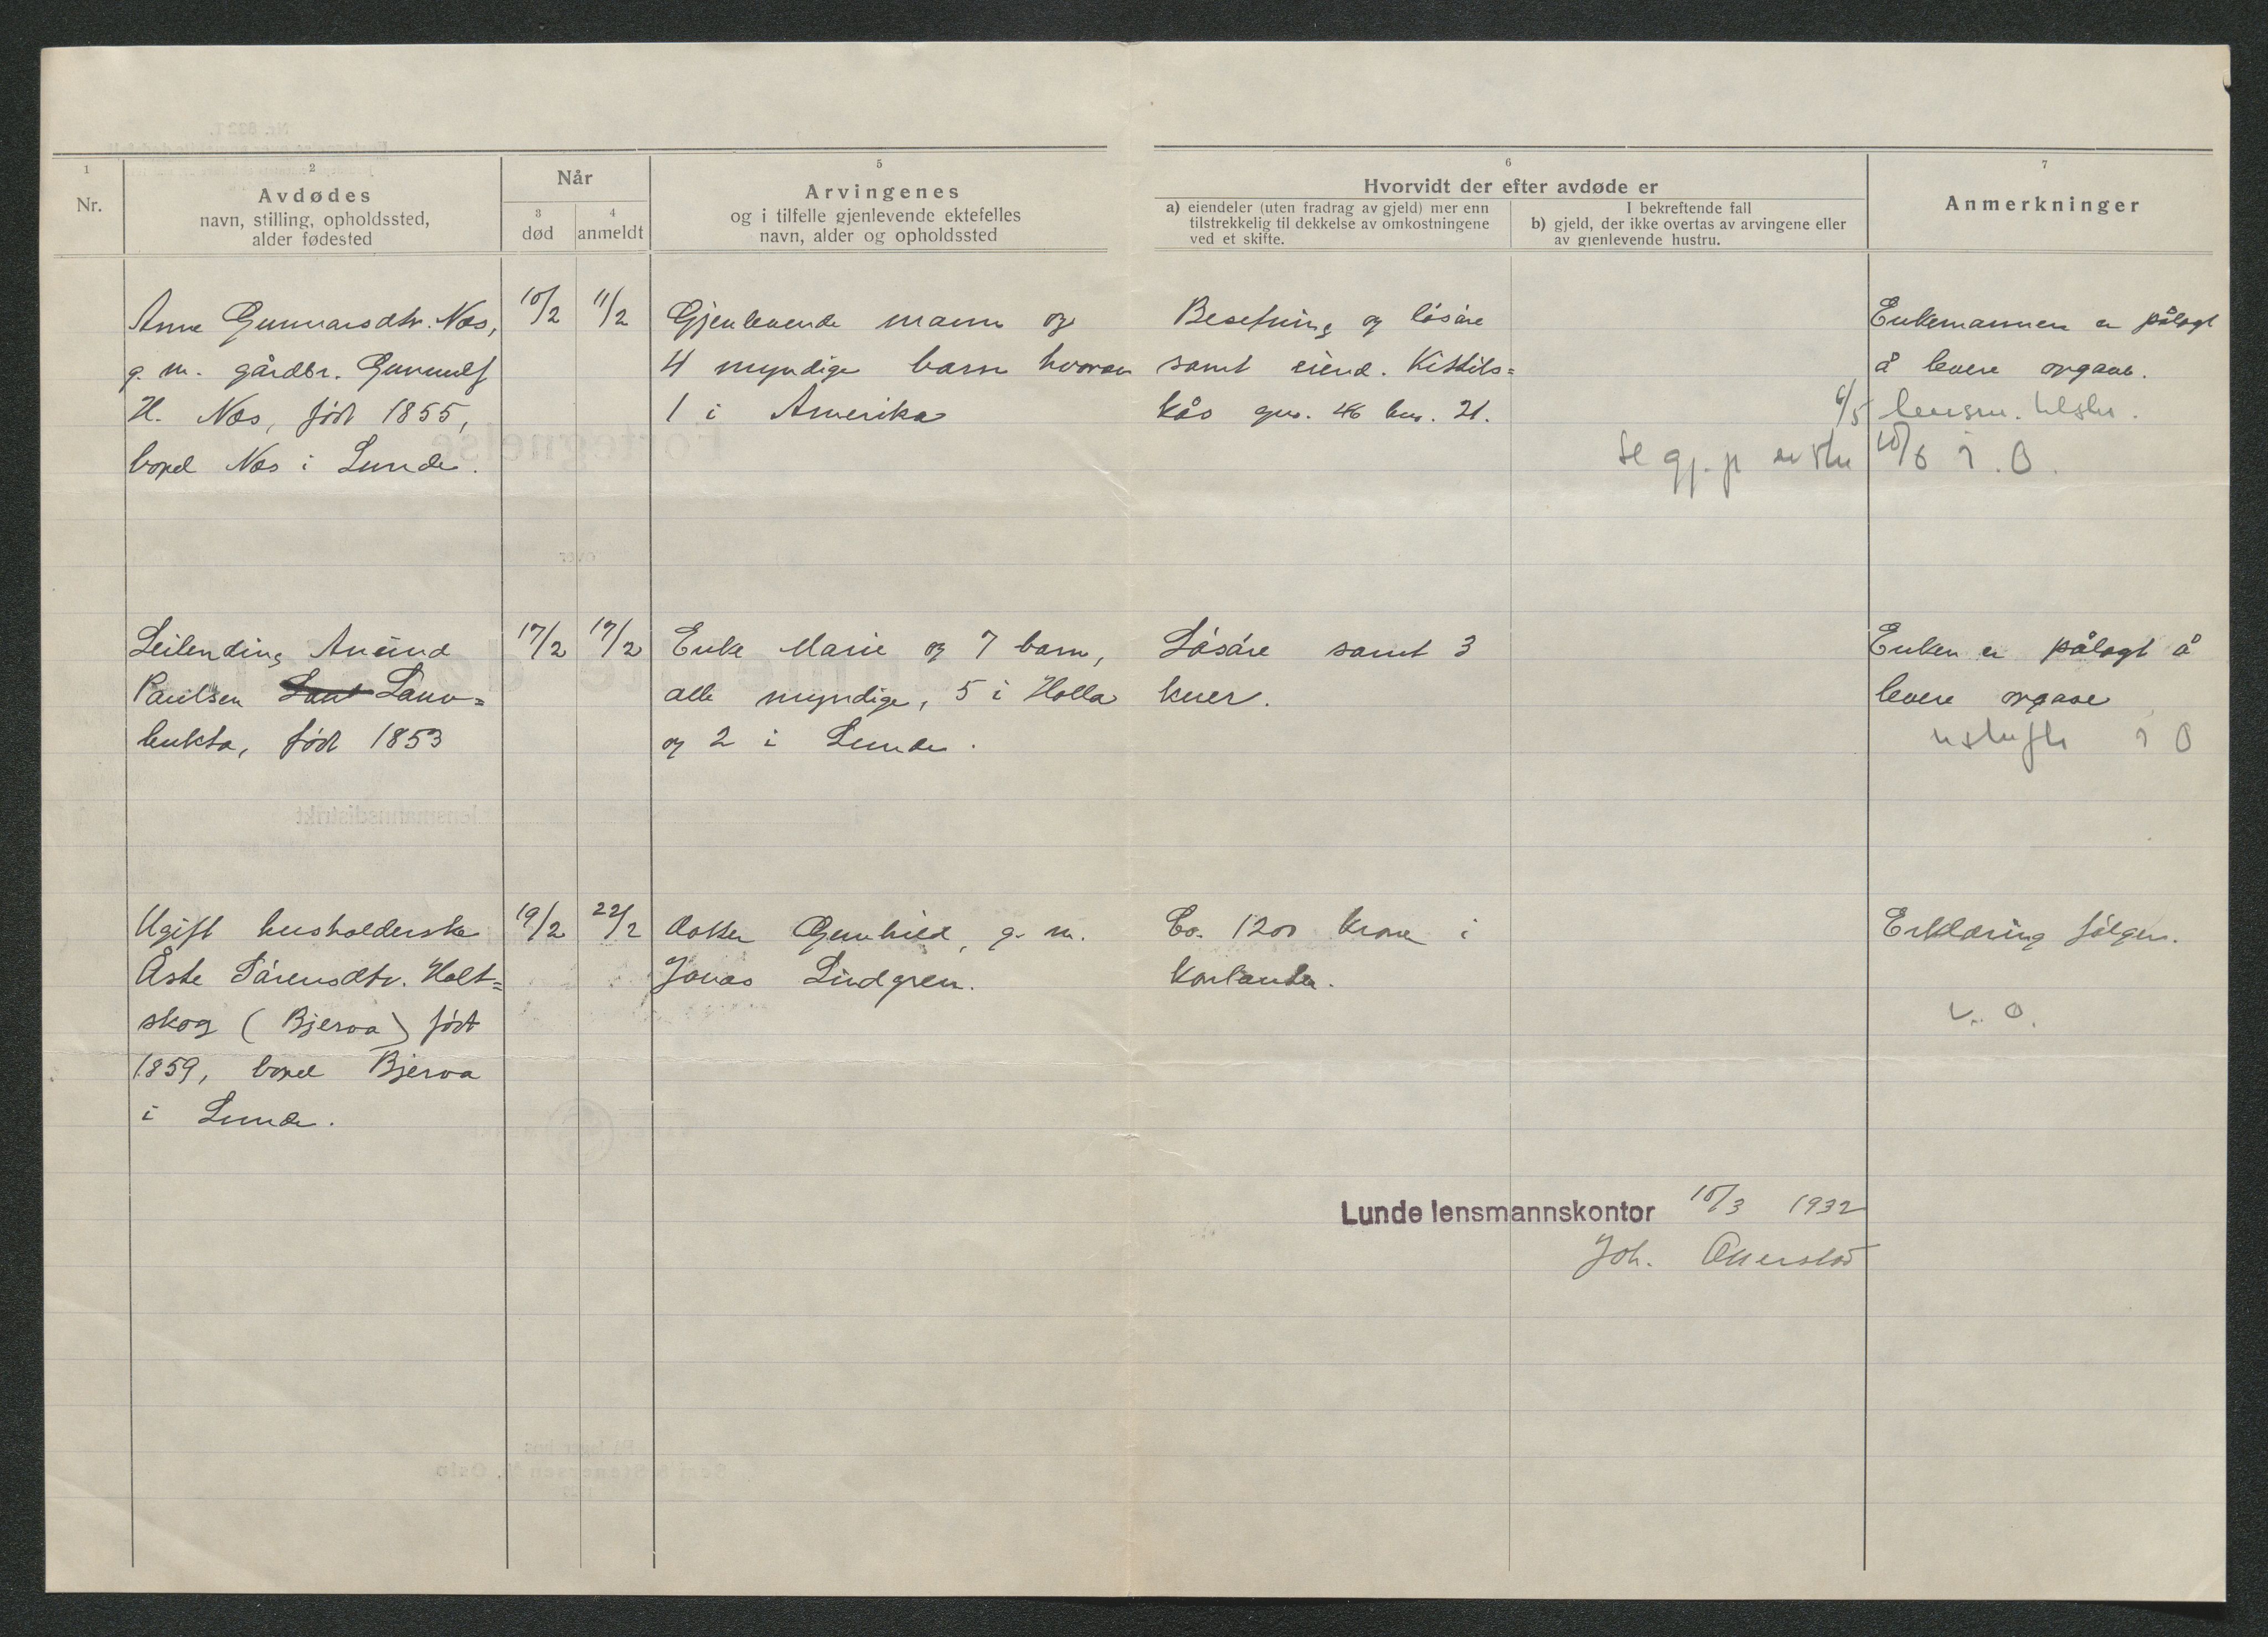 1
2
Avdødes
navn, stilling, opholdssted,
alder fødested
Nr.
Når
3
død
4
anmeldt
5
Arvingenes
og i tilfelle gjenlevende ektefelles
navn, alder og opholdssted
6
Hvorvidt der efter avdøde er
a) eiendeler (uten fradrag av gjeld) mer enn
tilstrekkelig til dekkelse av omkostningene
ved et skifte.
I bekreftende fall
b) gjeld, der ikke overtas av arvingene eller
av gjenlevende hustru.
7
Anmerkninger
Anne Gunnarsdtr. Nes,
g. m. gårdbr. Gunnulf
H. Nes, født 1855,
bopel Nes i Lunde.
10/2
11/2
Gjenlevende mann og
4 myndige barn hvorav
1 i Amerika
Besetning og løsøre
samt eiend. Kittils=
kås gnr. 46 bnr. 21.
Enkemannen er pålagt
å levere opgave.
6/5 lensm.
Se gj. p
10/6 i. O.
Leilending Anund
Paulsen Lauv=
bukta, født 1853
17/2
17/2
Enke Marie og 7 barn,
alle myndige, 5 i Holla
og 2 i Lunde.
Løsøre samt 3
kuer.
Enken er pålagt å
levere opgave
i O
Ugift husholderske
Åste Sørensdtr. Holt=
skog (Bjerva) født
1859, bopel Bjerva
i Lunde.
19/2
22/2
datter Gunhild, g. m.
Jonas Lindgren.
Co. 1200 kroner i
kontanter.
Erklæring følger.
Lunde lensmannskontor 10/3 1932
Joh.